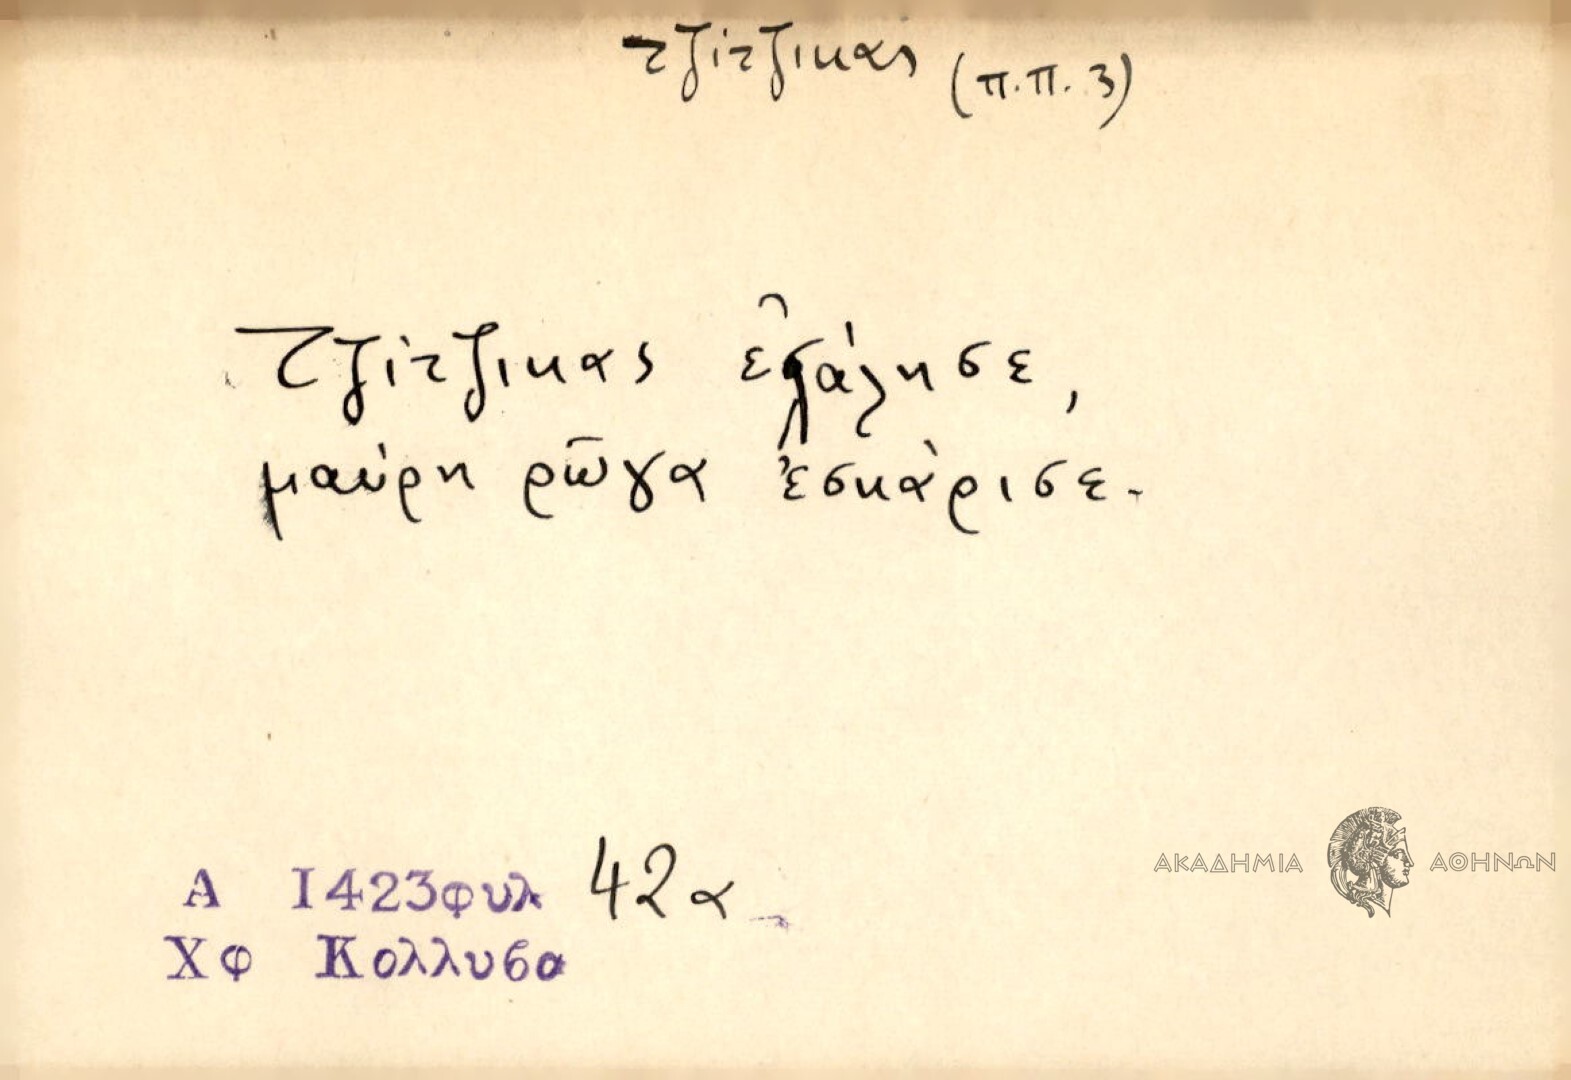 τζίτζικας (π.π. 3)
Τζίτζικας ἐλάλησε,
μαύρη ρῶγα ἐσκάρισε.
Α 1423φυλ 42α
Χφ Κολλυβα
ΑΚΑΔΗΜΙΑ ΑΘΗΝΩΝ